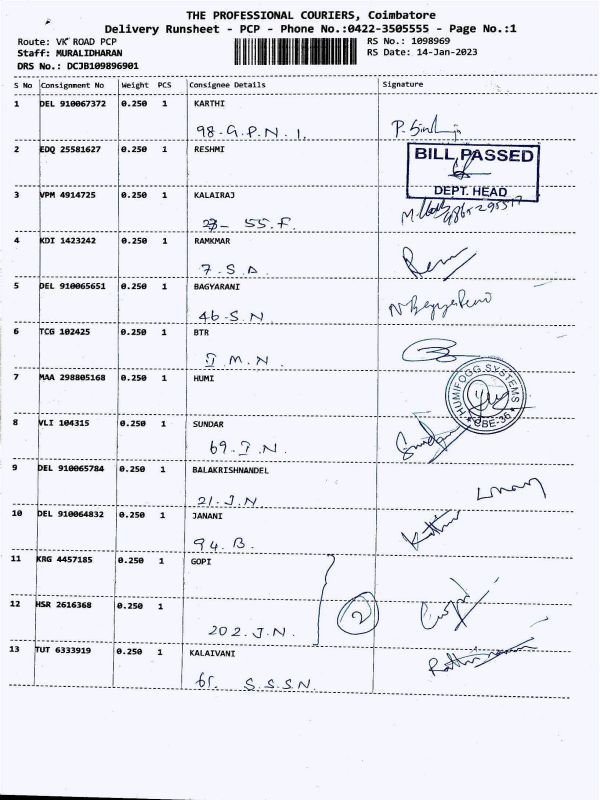 THE PROFESSIONAL COURIERS, Coimbatore
Delivery Runsheet - PCP - Phone No.:0422-3505555 - Page No.:1
Route: VK ROAD PCP
RS No.: 1098969
Staff: MURALIDHARAN
RS Date: 14-Jan-2023
DRS No.: DCJB109896901
S No Consignment No Weight PCS Consignee Details Signature
1 DEL 910067372 0.250 1 KARTHI
98-G.P.N.I.
2 EDQ 25581627 0.250 1 RESHMI
BILL PASSED
DEPT. HEAD
3 VPM 4914725 0.250 1 KALAIRAJ
55.F.
4 KDI 1423242 0.250 1 RAMKMAR
7.S.D.
5 DEL 910065651 0.250 1 BAGYARANI
46-S.N.
6 TCG 102425 0.250 1 BTR
M.N.
7 MAA 298805168 0.250 1 HUMI
HUMIFOGG SYSTEMS
CBE-36
8 VLI 104315 0.250 1 SUNDAR
69.I.N.
9 DEL 910065784 0.250 1 BALAKRISHNANDEL
21.J.N
10 DEL 910064832 0.250 1 JANANI
94.B.
11 KRG 4457185 0.250 1 GOPI
12 HSR 2616368 0.250 1
2
202.J.N.
13 TUT 6333919 0.250 1 KALAIVANI
S.S.S.N.